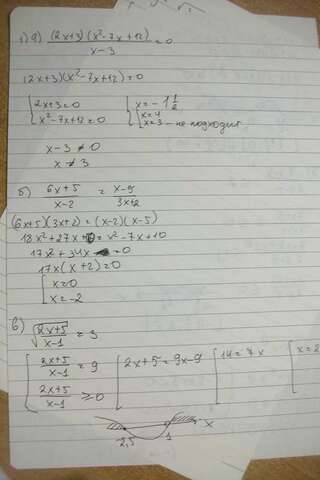 1) а) (2x+3)(x²-7x+12) / x-3 = 0
(2x+3)(x²-7x+12)=0
2x+3=0 x=-1 1/2
x²-7x+12=0 x=4
x=3 - не подходит
x-3≠0
x≠3
б) 6x+5 / x-2 = x-5 / 3x+2
(6x+5)(3x+2)=(x-2)(x-5)
18x²+27x+ = x²-7x+10
17x²+34x =0
17x(x+2)=0
x=0
x=-2
в) √ 2x+5 / x-1 = 3
2x+5 / x-1 = 9 2x+5=9x-9 14=7x x=2
2x+5 / x-1 ≥0
2,5 1 x